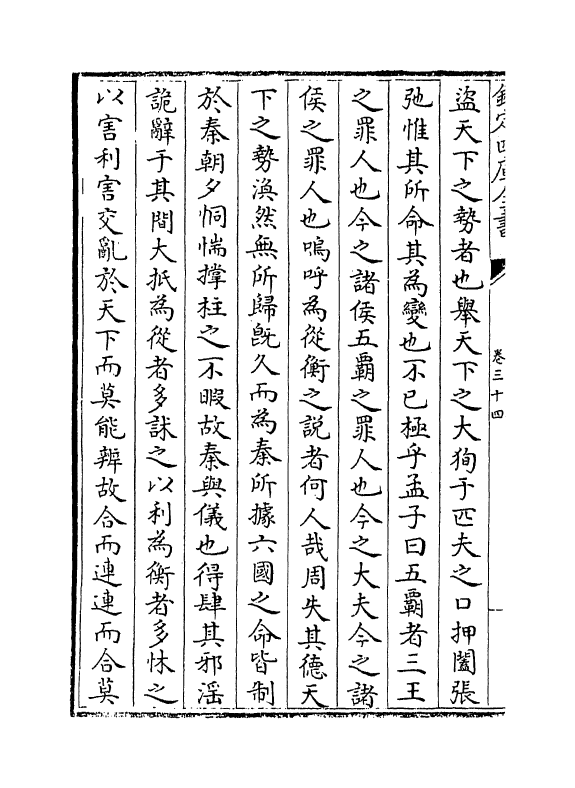 欽定四庫全書
卷三十四
盜天下之勢者也舉天下之大狥于匹夫之口押闔張
弛惟其所命其為變也不已極乎孟子曰五霸者三王
之罪人也今之諸侯五霸之罪人也今之大夫今之諸
侯之罪人也嗚呼為從衡之説者何人哉周失其德天
下之勢渙然無所歸旣久而為秦所據六國之命皆制
於秦朝夕恫惴撑柱之不暇故秦與儀也得肆其邪滛
詭辭于其間大抵為從者多訹之以利為衡者多怵之
以害利害交亂於天下而莫能辨故合而連連而合莫